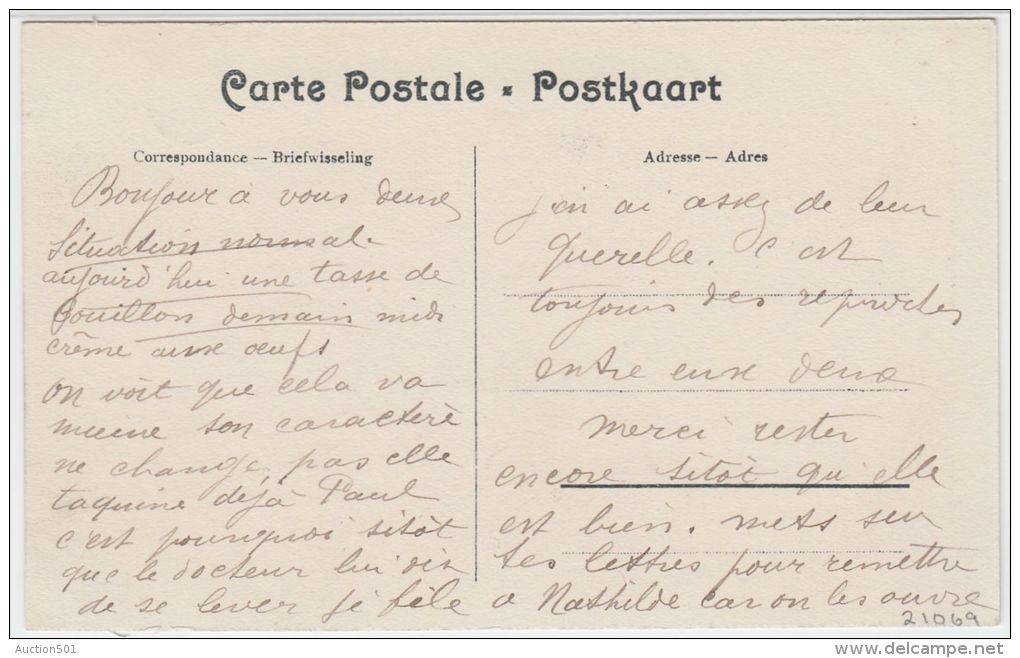 Carte Postale - Postkaart
Correspondance — Briefwisseling
Bonjour à vous deux
Situation normal.
aujourd'hui une tasse de
Bouillon demain midi
crème aux oeufs
on voit que cela va
mieux son caractère
ne change pas elle
taquine déjà Paul
c'est pourquoi sitôt
que le docteur lui dit
de se lever je file
Adresse — Adres
j'en ai assez de leur
querelle. c'est
toujours des reproches
entre eux deux
merci rester
encore sitôt qu'elle
est bien. mets sur
tes lettres pour remettre
a Mathilde car on les ouvre
21069
Auction501